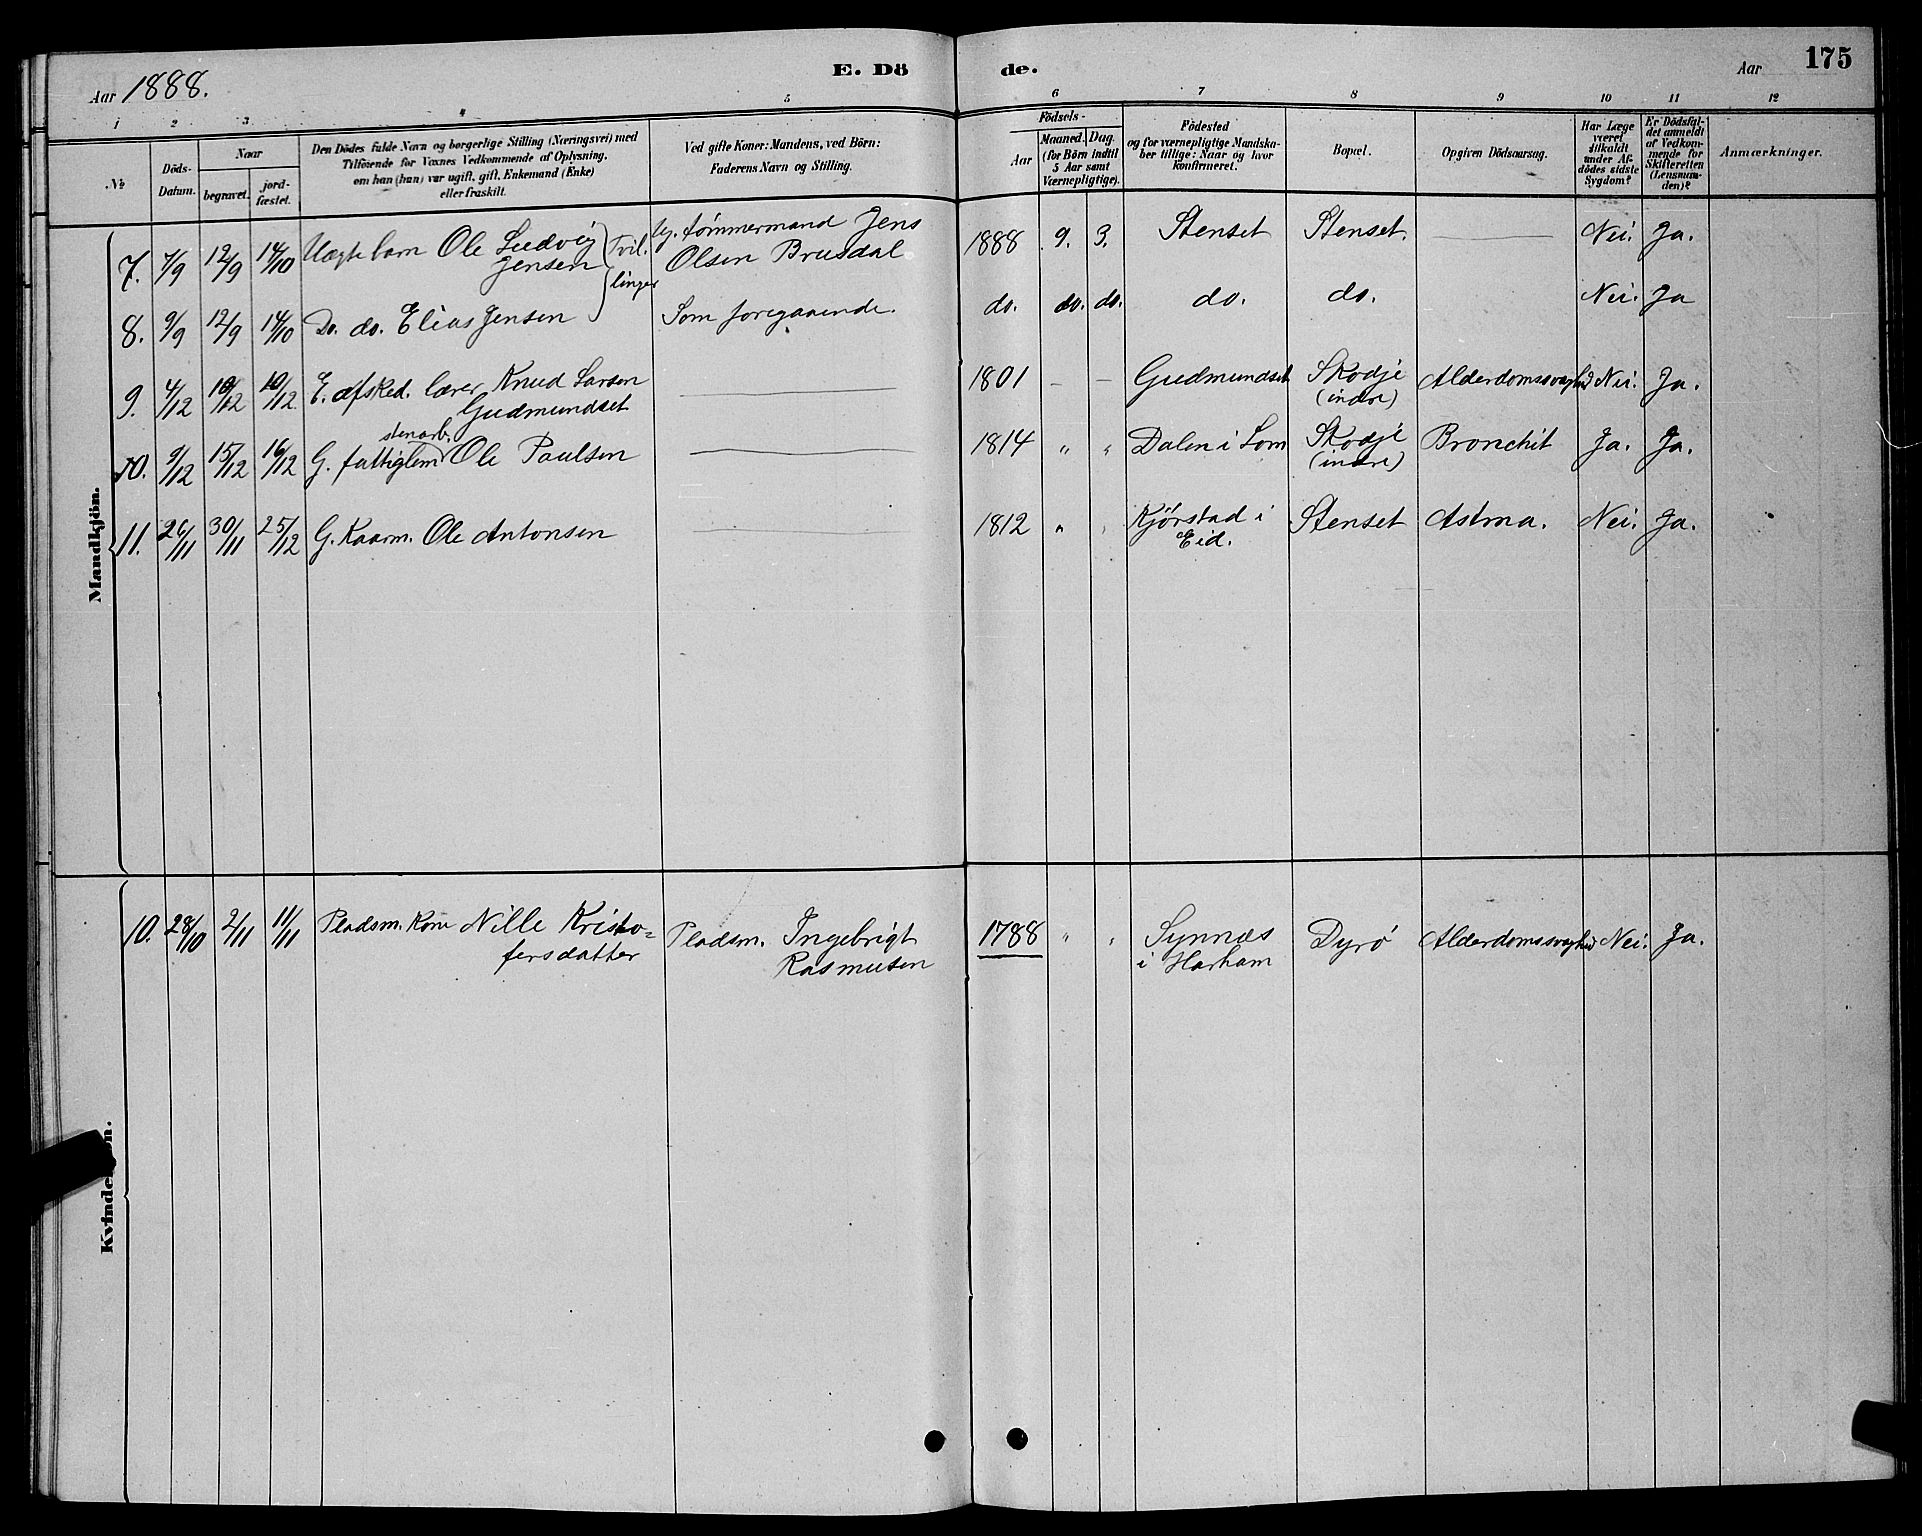 Aar 1888.
E. Dö de.
Aar 175
1 2 3 4 5 6 7 8 9 10 11 12
№
Döds-Datum.
Naar
begravet.
jord-fæstet.
Den Dödes fulde Navn og borgerlige Stilling (Næringsvei) med
Tilföiende for Voxnes Vedkommende af Oplysning,
om han (hun) var ugift, gift, Enkemand (Enke)
eller fraskilt.
Ved gifte Koner: Mandens, ved Börn:
Faderens Navn og Stilling.
Födsels-
Aar
Maaned. Dag.
(for Börn indtil
5 Aar samt
Værnepligtige).
Födested
og for værnepligtige Mandska-
ber tillige: Naar og hvor
konfirmeret.
Bopæl.
Opgiven Dödsaarsag.
Har Læge
været
tilkaldt
under Af-
dödes sidste
Sygdom?
Er Dödsfal-
det anmeldt
af Vedkom-
mende for
Skifteretten
(Lensman-
den)?
Anmærkninger.
Mandkjön.
7. 7/9 12/9 14/10 Uægte barn Ole Ludvig Jensen (Tvil- Ug. tømmermand Jens Olsen Brusdal 1888 9. 3. Stenset Stenset. — Nei. Ja.
linger
8. 9/9 12/9 14/10 Do. do. Elias Jensen Som foregaaende. do. do. do. do. do. Nei. Ja
9. 4/12 10/12 10/12 E. afsked. lærer Knud Larsen Gudmundset — 1801 — — Gudmundset Skodje (indre) Alderdomssvaghed Nei. Ja.
10. 9/12 15/12 16/12 G. fattiglem stenarb. Ole Paulsen — 1814 " " Dalen i Lom Skodje (indre) Bronchit Ja. Ja.
11. 26/11 30/11 25/12 G. Kaarm. Ole Antonsen — 1812 " " Kjørstad i Eid. Stenset Astma. Nei. Ja.
Kvinde n.
10. 28/10 2/11 11/11 Pladsm. Kone Nille Kristo=
fersdatter Pladsm. Ingebrigt Rasmusen 1788 " " Synnæs i Harham Dyrø Alderdomssvaghed Nei. Ja.